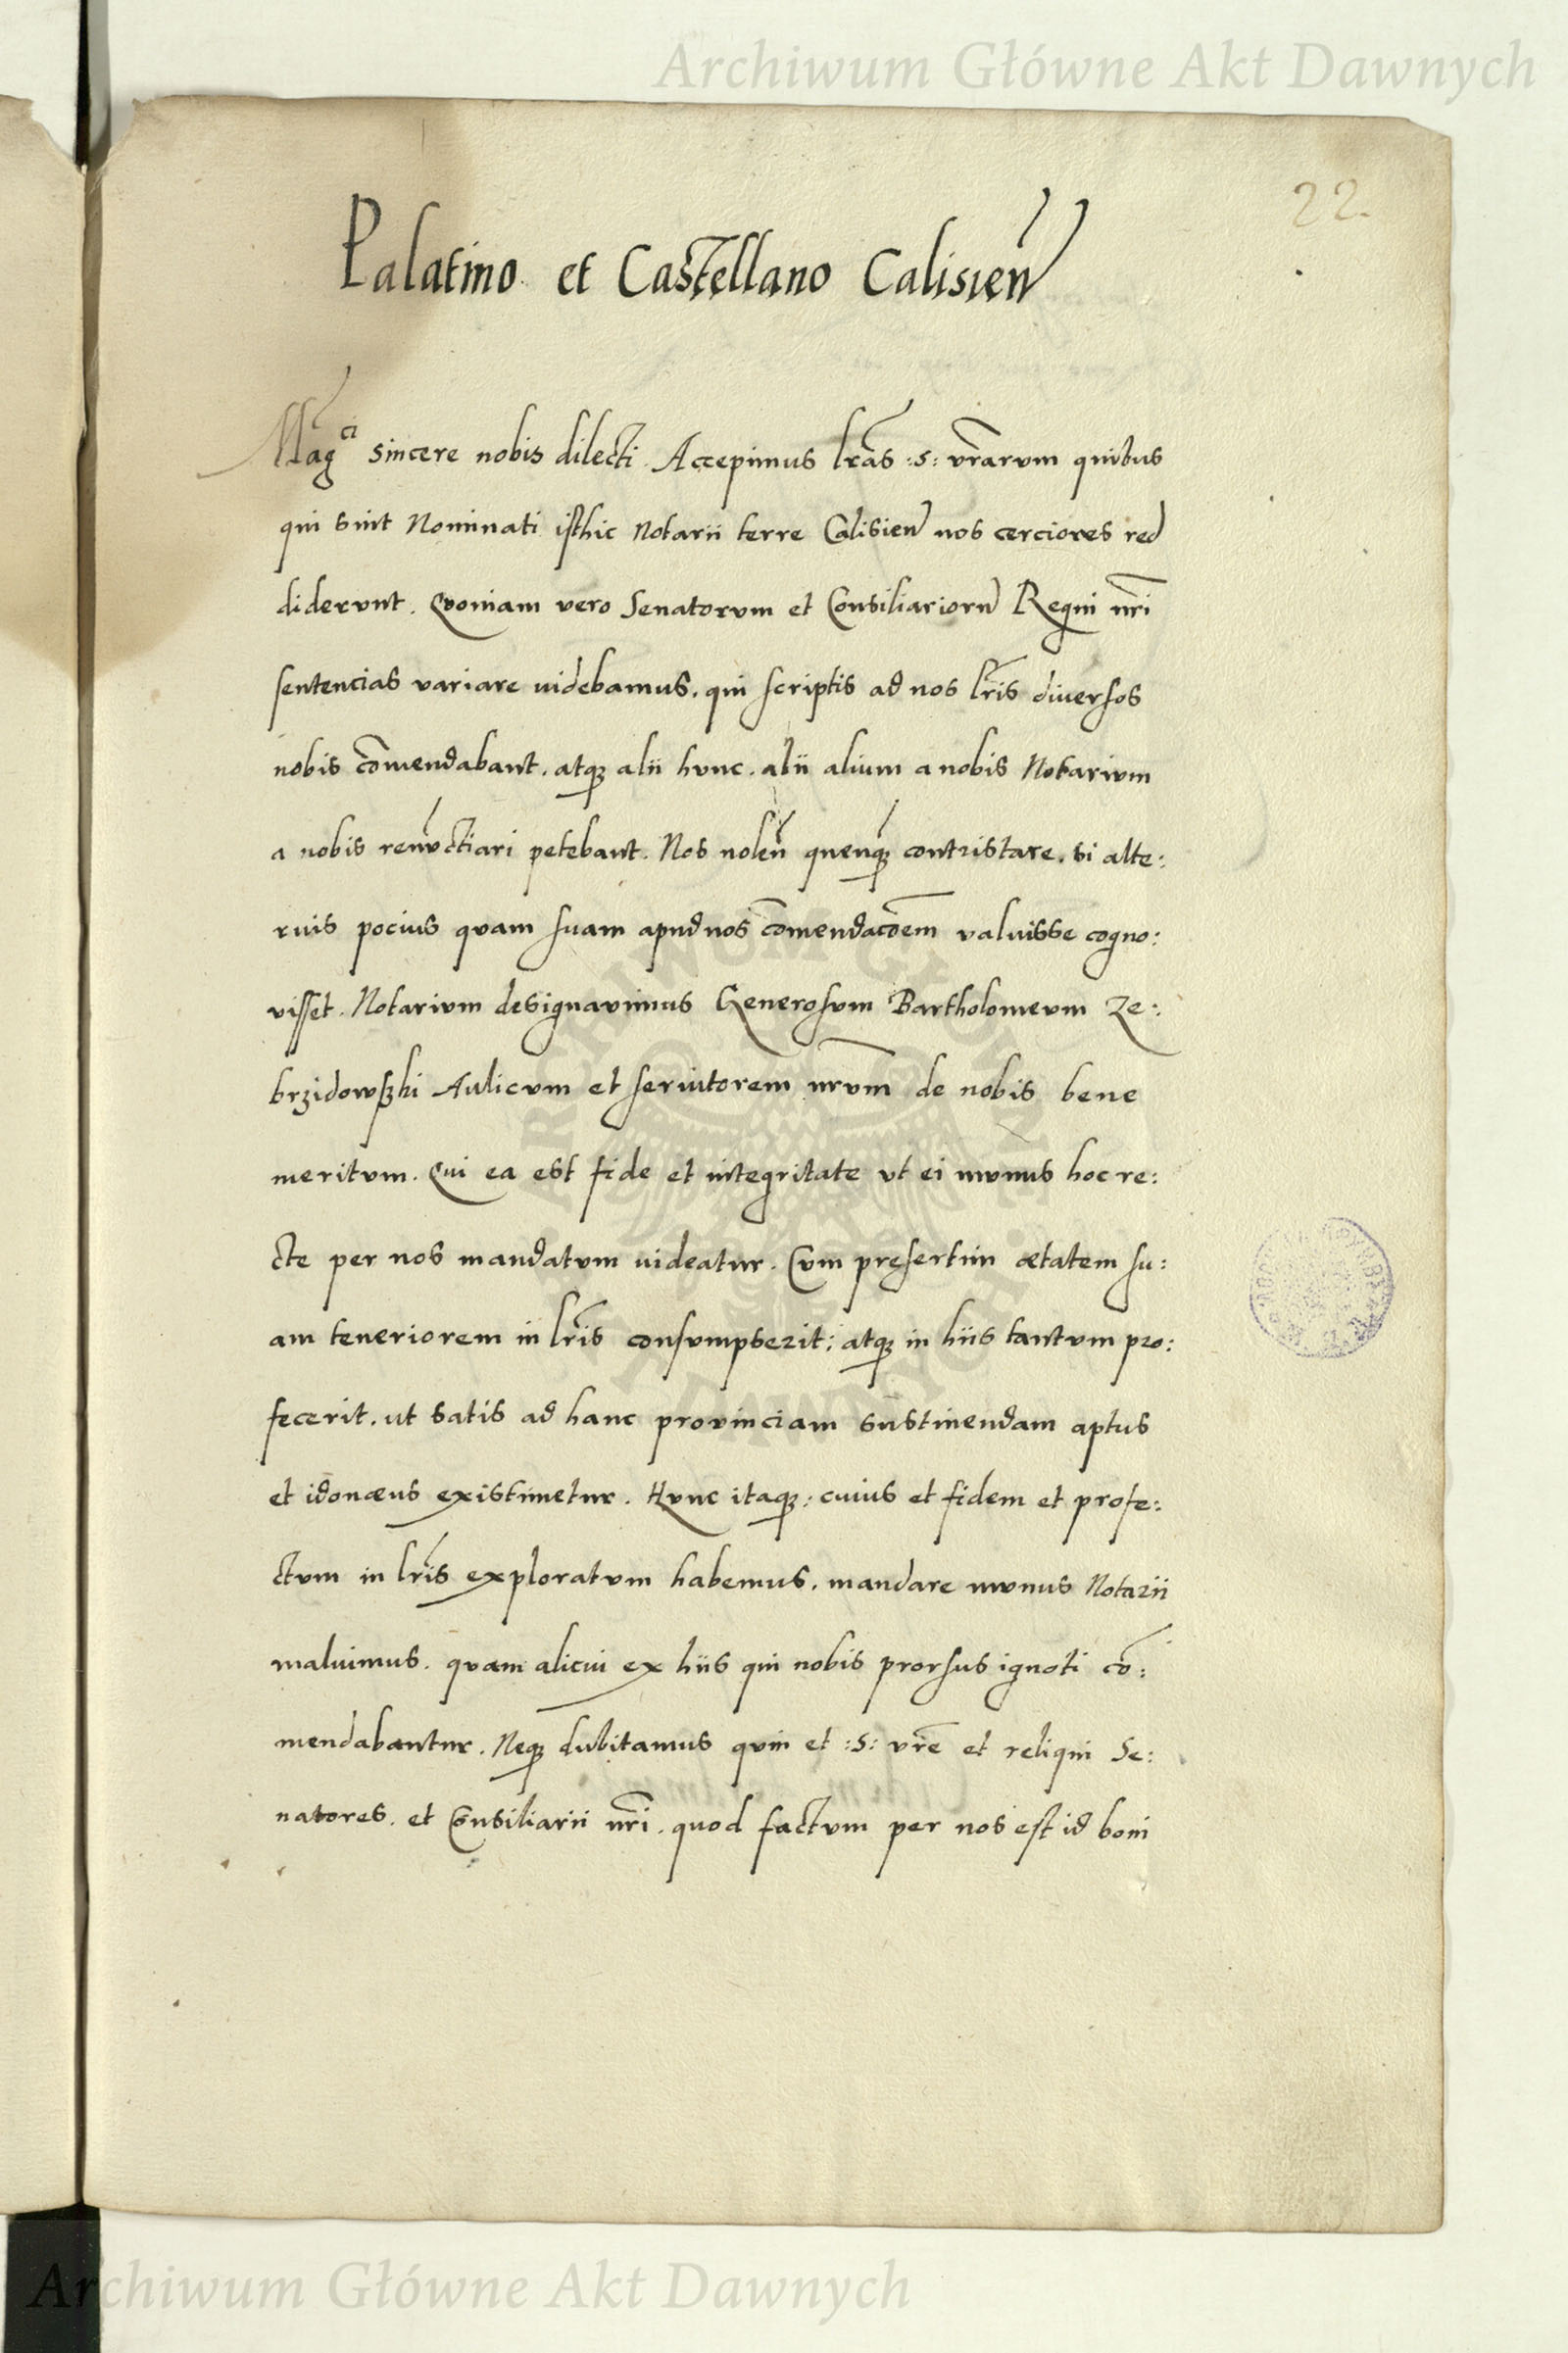 Archiwum Główne Akt Dawnych
22.
Palatino et Castellano Calisien
Mag^ci sincere nobis dilecti Accepimus lras :s: vrarum quibus
qui sint Nominati isthic Notarii terre Calisien nos cerciores red
diderunt. Quoniam vero Senatorum et Consiliariorum Regni nri
sentencias variare videbamus. qui scriptis ad nos lris diversos
nobis comendabant. atq; alii hunc. alii alium a nobis Notarium
a nobis renuctiari petebant. Nos nolen quenq; contristare. si alte:
rius pocius quam suam apud nos comendacoem valuisse cogno:
visset. Notarium designavimus Generosum Bartholomeum Ze:
brzidowszki Aulicum et servitorem nrum de nobis bene
meritum. Qui ea est fide et integritate ut ei munus hoc re:
cte per nos mandatum videatur. Cum presertim ætatem su:
am teneriorem in lris consumpserit; atq; in hiis tantum pro:
fecerit. ut satis ad hanc provinciam sustinendam aptus
et idonæus existimetur. Hunc itaq;: cuius et fidem et profe:
ctum in lris exploratum habemus. mandare munus Notarii
maluimus. quam alicui ex hiis qui nobis prorsus ignoti co:
mendabantur. Neq; dubitamus quin et :s: vre et reliqui Se:
natores. et Consiliarii nri. quod factum per nos est id boni
Archiwum Główne Akt Dawnych